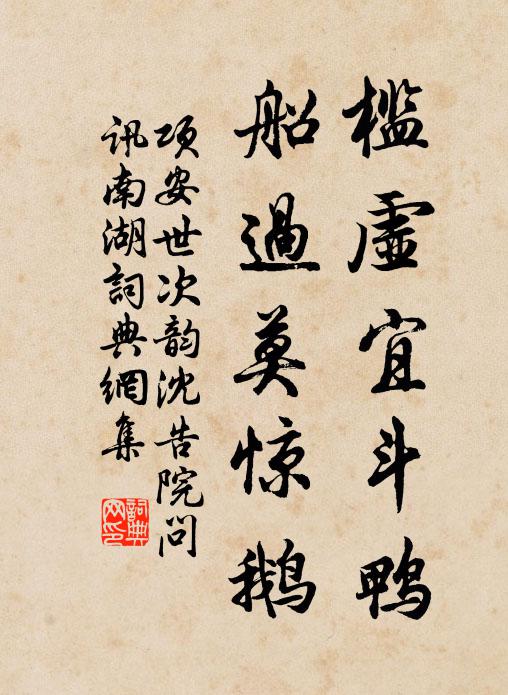 槛虚宜斗鸭
船過莫惊鹅
项安世次韵沈告院问
讯南湖詞典網集
詞典
网印